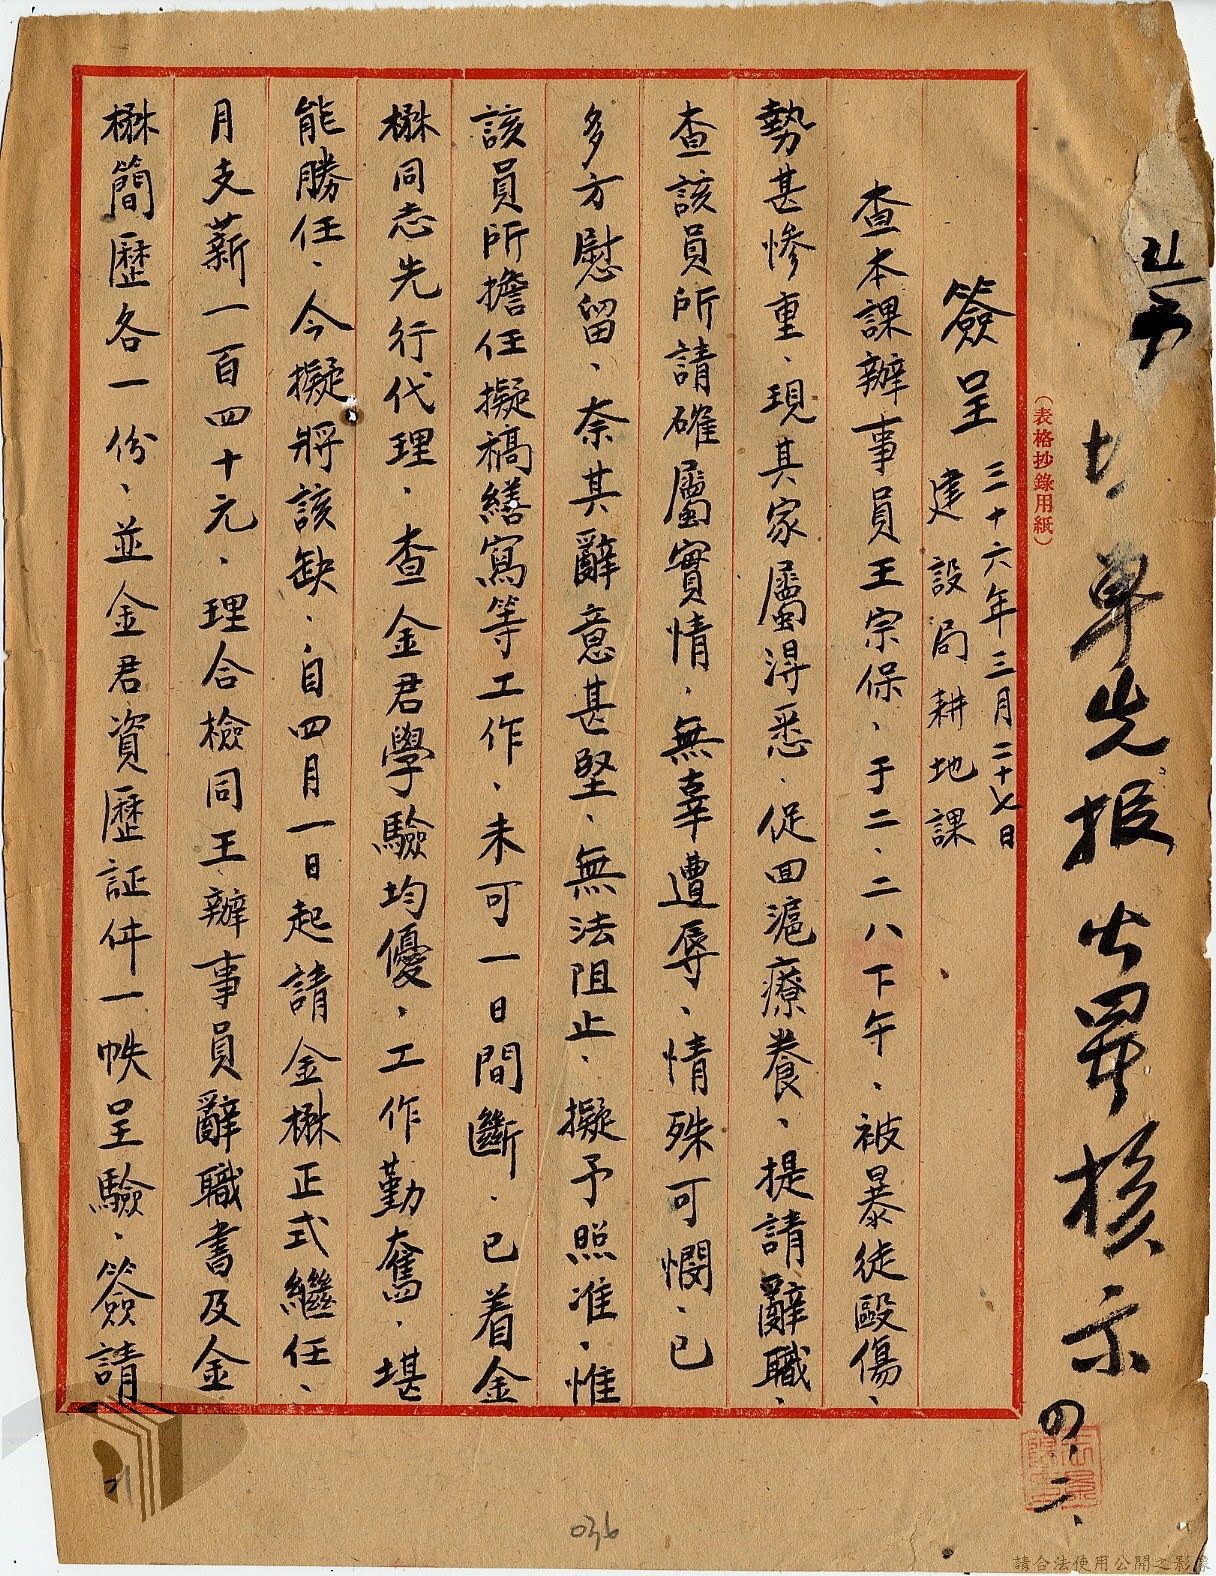 簽呈 三十六年三月二十七日
建設局耕地課
查本課辦事員王宗保、于二、二八下午、被暴徒毆傷、
勢甚慘重、現其家屬得悉、促回滬療養、提請辭職、
查該員所請確屬實情、無辜遭辱、情殊可憫、已
多方慰留、奈其辭意甚堅、無法阻止、擬予照准、惟
該員所擔任擬稿繕寫等工作、未可一日間斷、已着金
楙同志先行代理、查金君學驗均優、工作勤奮、堪
能勝任、今擬將該缺、自四月一日起請金楙正式繼任、
月支薪一百四十元、理合檢同王辦事員辭職書及金
楙簡歷各一份、並金君資歷証件一帙呈驗、簽請
(表格抄錄用紙)
單先報 核示
四、二、
036
請合法使用公開之影像